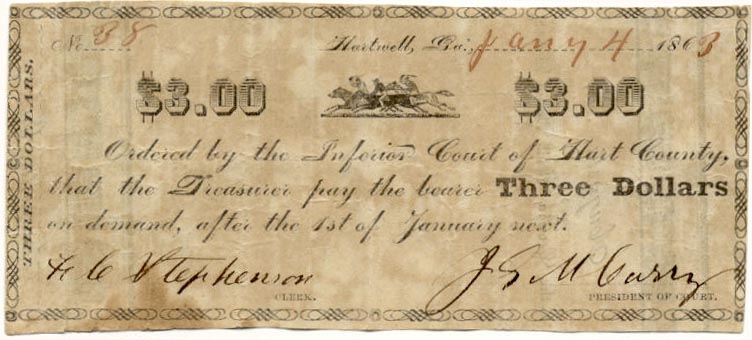 No. 38 Hartwell, Ga., Jany 4 1863
$3.00 $3.00
Ordered by the Inferior Court of Hart County,
that the Treasurer pay the bearer Three Dollars
on demand, after the 1st of January next.
Stephenson J M Curry
CLERK. PRESIDENT OF COURT.
THREE DOLLARS.